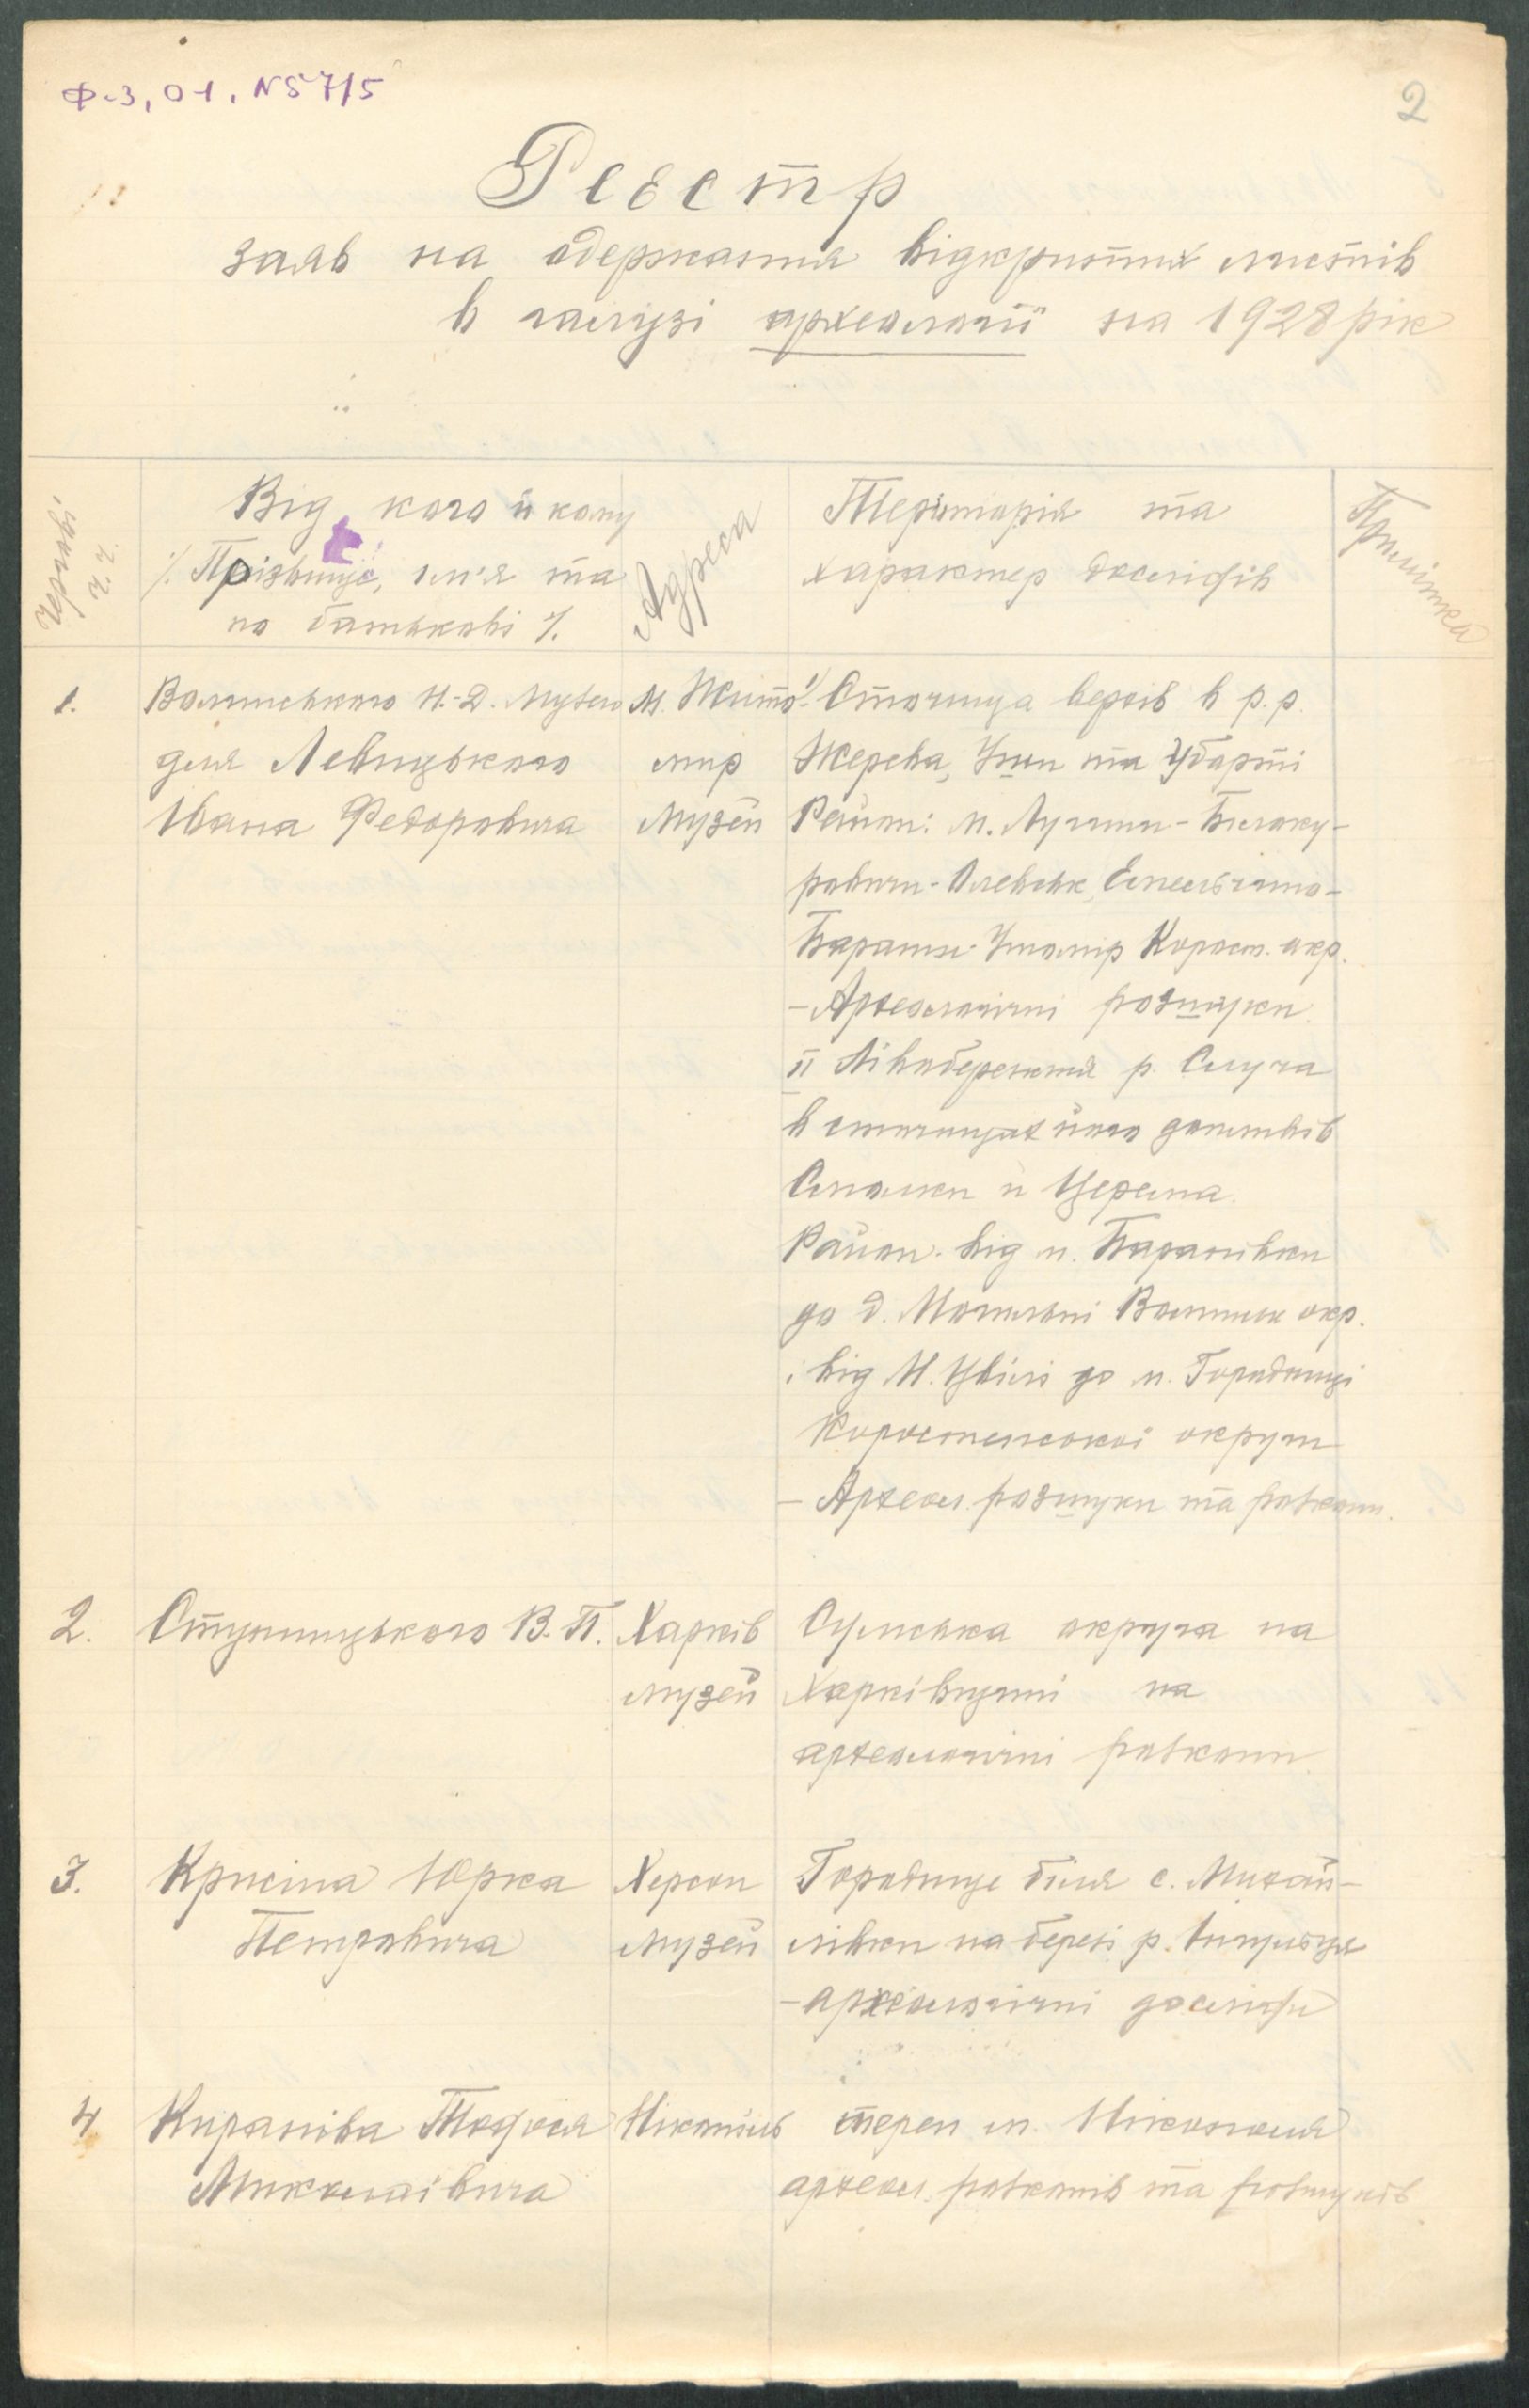 Ф-3, О-1, N 57/5
2
Реєстр
заяв на одержання відкритих листів
в галузі археології на 1928 рік
Чергов. ч.ч.
Від кого й кому
/. Прізвище, ім'я та
по батькові /.
Адреса
Територія та
характер дослідів
Примітка
1.
Волинського Н.-Д. Музею
для Левицького
Івана Федоровича
м. Жито-
мир
Музей
I/ Сточища верхів в р.р.
Жерева, Уши та Уборті
Район: м. Лугини - Білоку-
ровичи - Олевськ, Емельчино-
Бараши - Ушомір Корост. окр.
- Археологічні розшуки.
II Лівобережжя р. Случа
в сточищах його допливів
Смолки й Церема.
Район від м. Баранівки
до д. Могильні Волинськ окр.
і від М. Цвілі до м. Городниці
Коростенської округи
- Археол. розшуки та розкопи.
2.
Ступницького В. П.
Харків
музей
Сумська округа на
Харківщині на
археологічні розкопи.
3.
Крисіна Юрка
Петровича
Херсон
музей
Городище біля с. Михай-
лівки на березі р. Інгульця
- археологічні досліди
4.
Киранова Тодося
Миколаівича
Нікопіль
терен м. Нікополя
археол. розкопів та розшуків